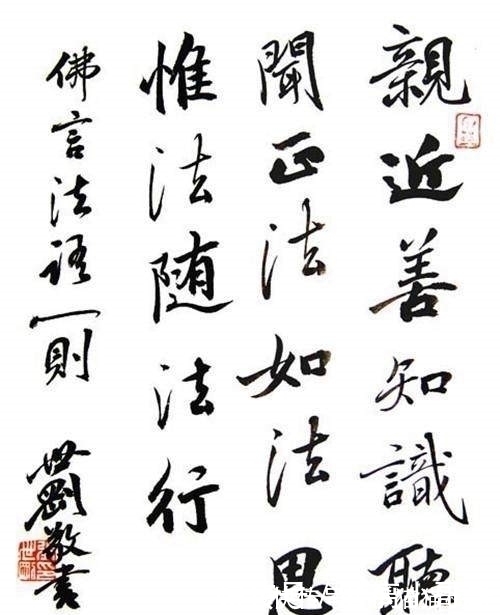 親近善知識聽
聞正法如法思
惟法随法行
佛言法语一則
世剛敬書